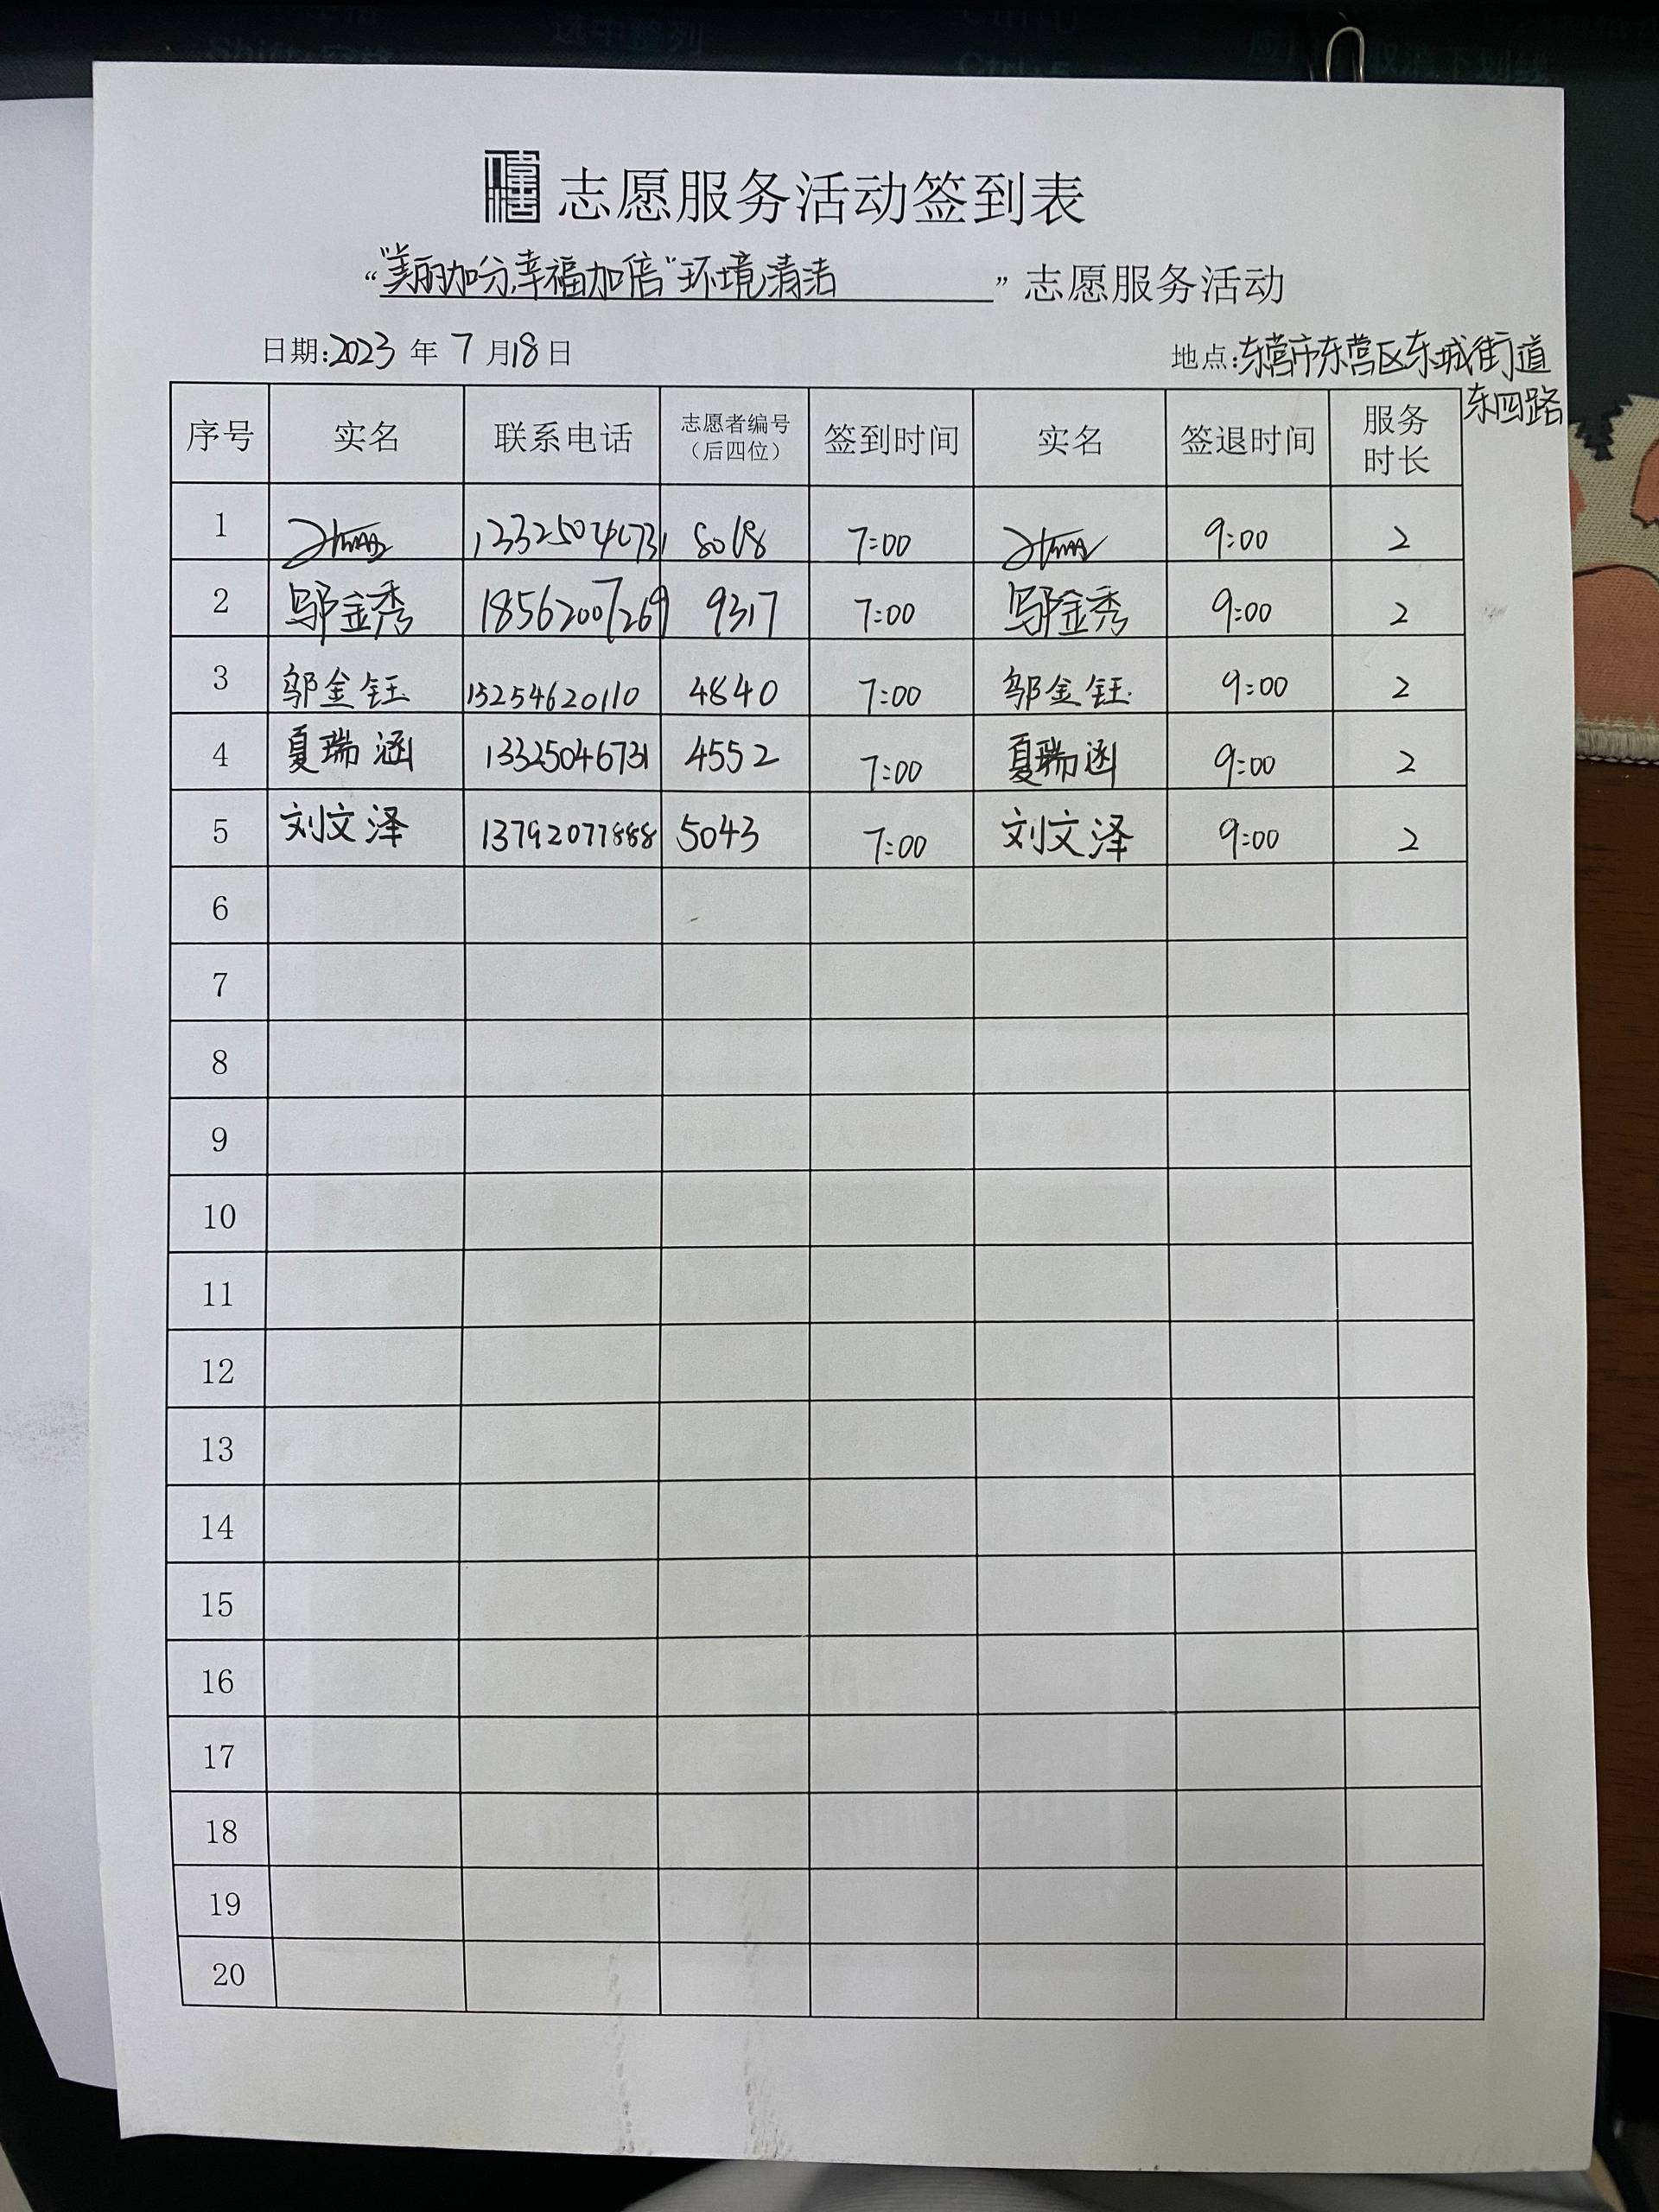 志愿服务活动签到表
“"美丽加分,幸福加倍"环境清洁”志愿服务活动
日期:2023 年 7 月18日 地点:东营市东营区东城街道
东四路
序号 实名 联系电话 志愿者编号（后四位） 签到时间 实名 签退时间 服务时长
1 13325046731 8018 7:00 9:00 2
2 邬金秀 18562007269 9317 7:00 邬金秀 9:00 2
3 邬金钰 15254620110 4840 7:00 邬金钰 9:00 2
4 夏瑞涵 13325046731 4552 7:00 夏瑞涵 9:00 2
5 刘文泽 13792077888 5043 7:00 刘文泽 9:00 2
6
7
8
9
10
11
12
13
14
15
16
17
18
19
20